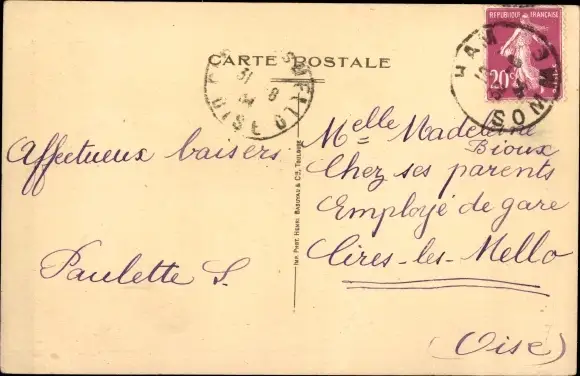 CARTE POSTALE
REPUBLIQUE FRANÇAISE
20c
HAM
SOMME
31 8
OISE
Affectueux baisers
Paulette S.
IMP. PHOT. HENRI BASUYAU & Cie, TOULOUSE
Melle Madeleine
Bioux
Chez ses parents
Employé de gare
Cires-les-Mello
(Oise)